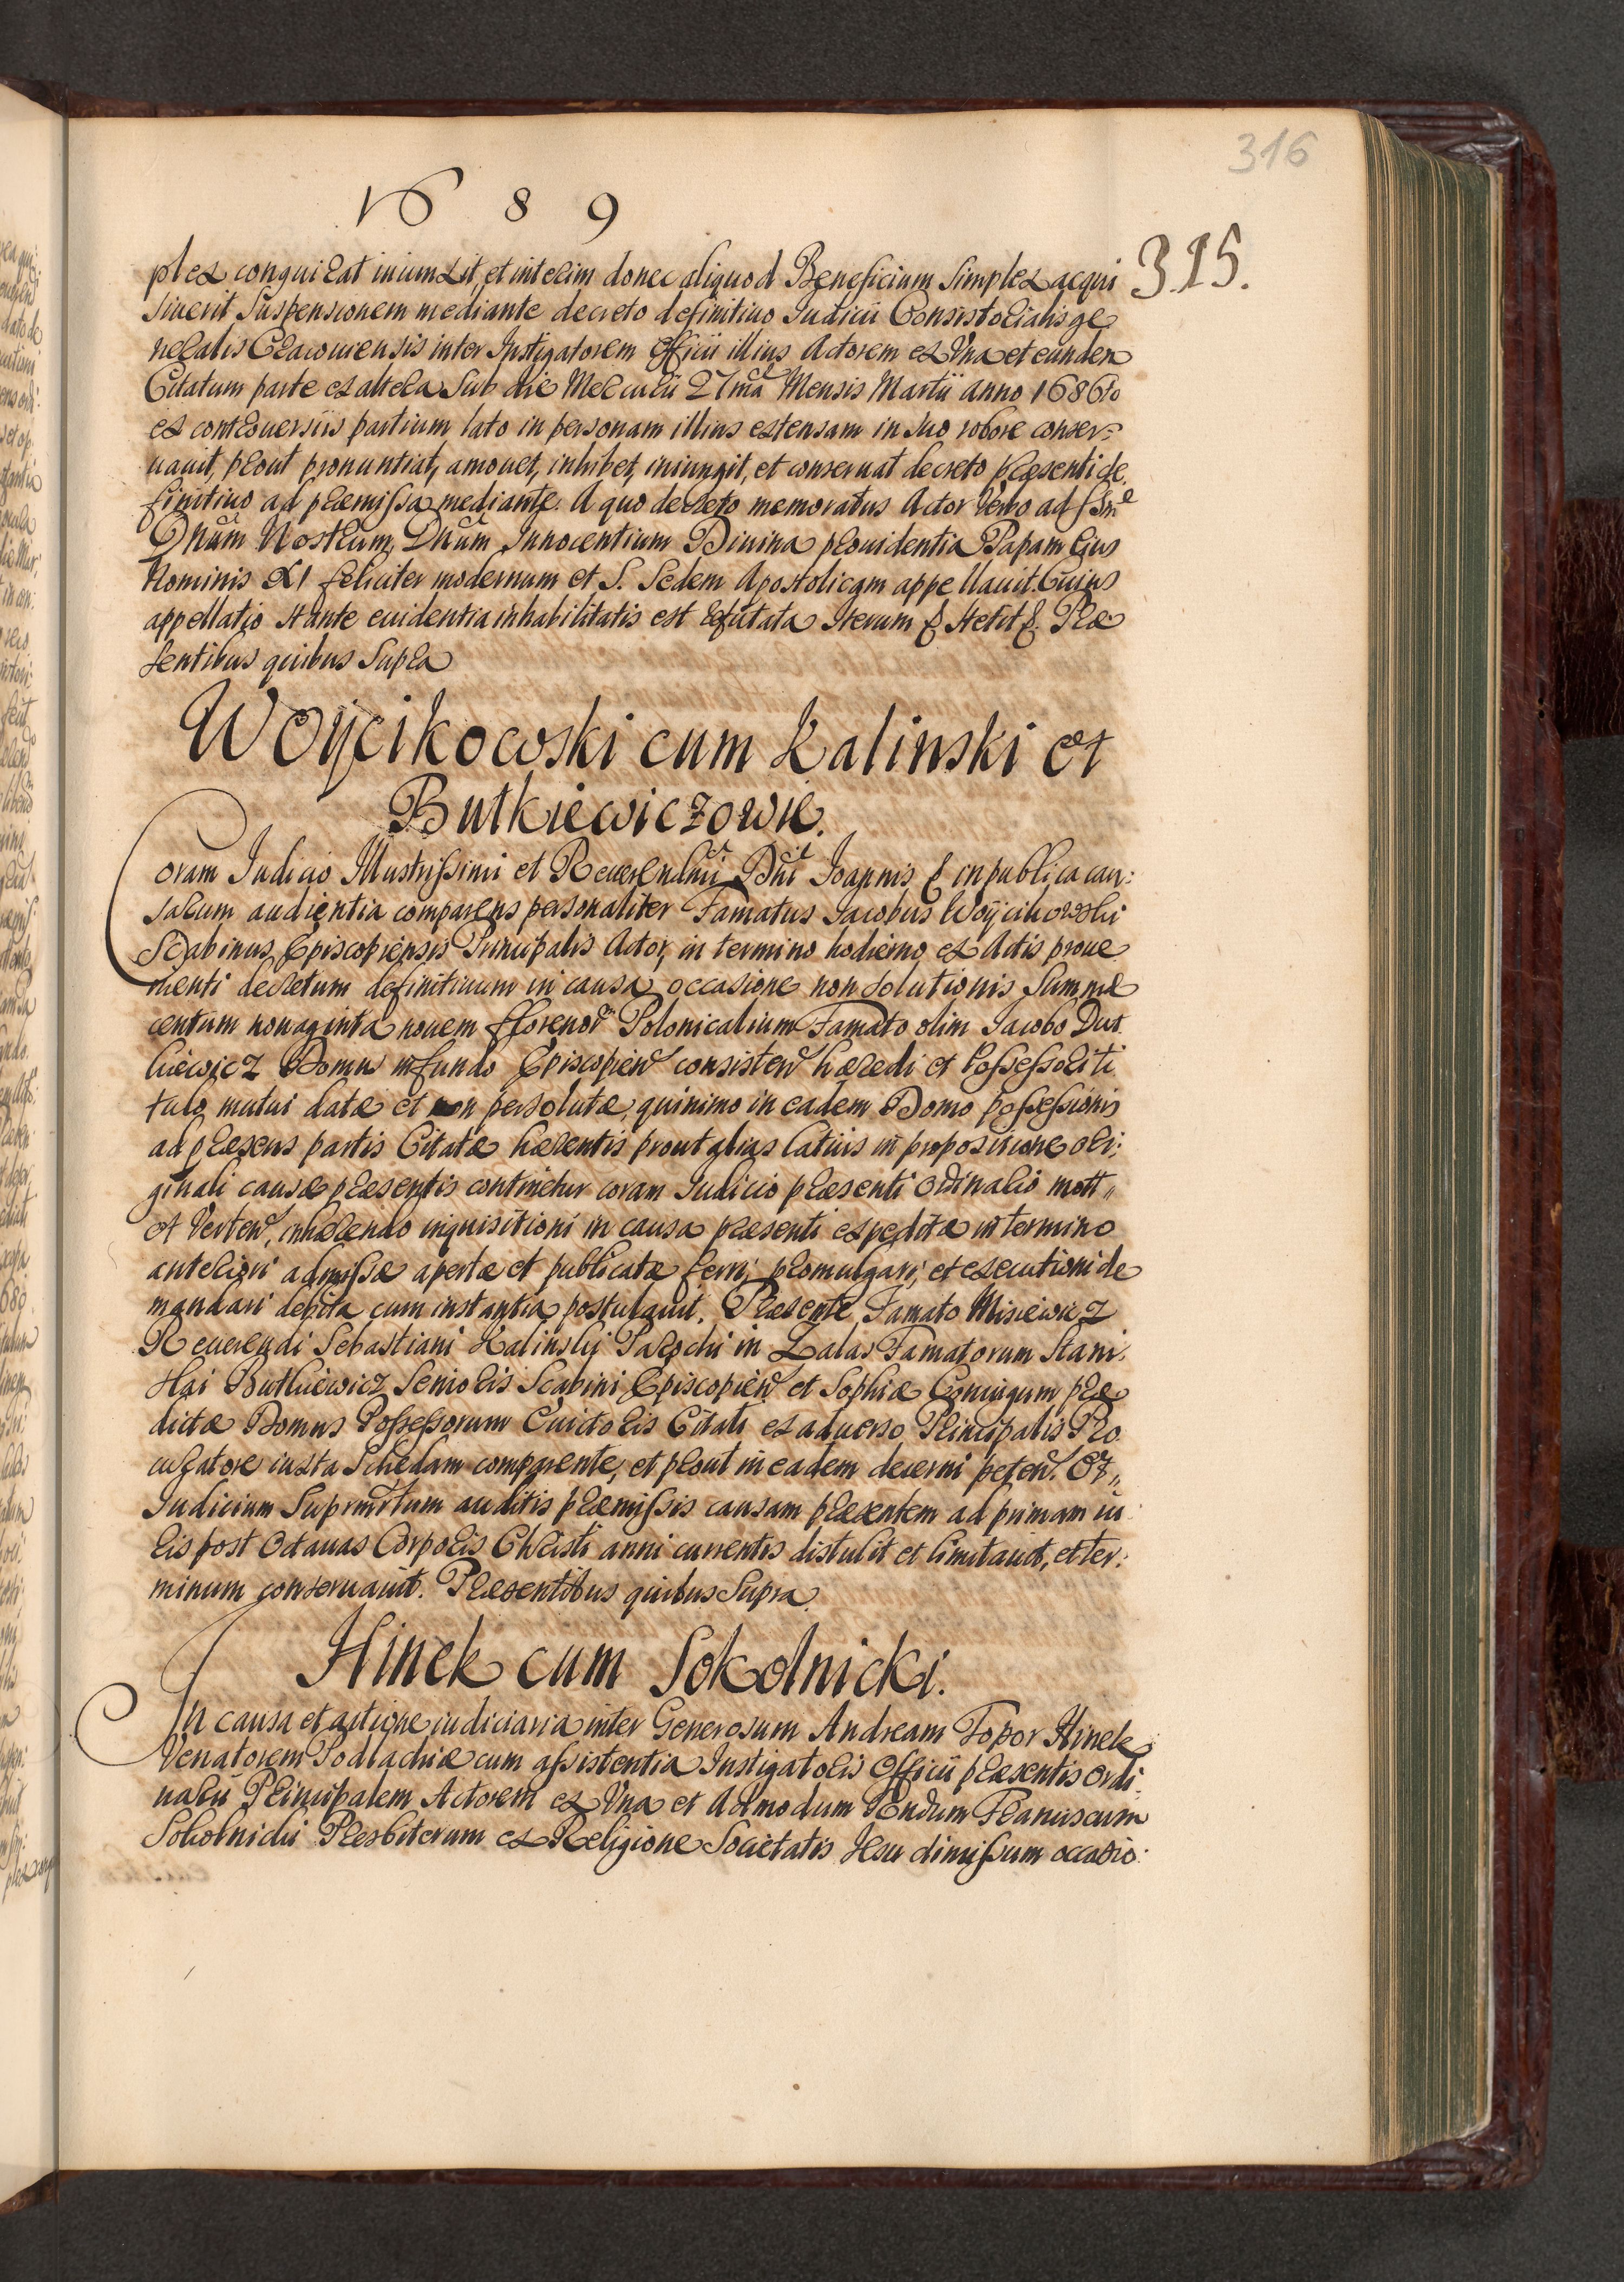 316
1689
315.
plex conquirat iniunxit, et interim donec aliquod Beneficium Simplex acqui
siuerit Suspensionem mediante decreto definitiuo Iudicii Consistorialis ge
neralis Cracouiensis inter Instigatorem Officii illius Actorem ex Vna et eundem
Citatum parte ex altera Sub die Mercurii 27ma Mensis Martii Anno 1686to
ex controuersiis partium lato in personam illius extensam in suo robore conser-
uauit, prout pronuntiat, amouet, inhibet, iniungit, et conseruat decreto præsenti de
finitiuo ad præmissa mediante. A quo decreto memoratus Actor Verbo ad SSmū
Dnūm Nostrum, Dnūm Innocentium Diuina prouidentia Papam Eius
Nominis XI feliciter modernum et S. Sedem Apostolicam appellauit. Cuius
appellatio stante euidentia inhabilitatis est refutata Iterum & stetit &. Præ
sentibus quibus Supra
Woÿcikowski cum Kalinski et
Butkiewiczowie.
Coram Iudicio Illustrissimi et Reuerendmi Dni Ioannis & in publica cau:
sarum audientia comparens personaliter Famatus Iacobus Woÿcikowski
Scabinus Episcopiensis Principalis Actor, in termino hodierno ex Actis proue
nienti decretum definitiuum in causa occasione non solutionis Summæ
centum nonaginta nouem fflorenor Polonicalium Famato olim Iacobo But
kiewicz Domus in fundo Episcopien consisten hæredi et Possessori ti
tulo mutui datæ et non persolutæ, quinimo in eadem Domo possessionis
ad præsens partis Citatæ hærentis prout alias latius in propositione ori:
ginali causæ præsentis continetur coram Iudicio præsenti ordinario mott
et Verten, inhærendo inquisitioni in causa præsenti expeditæ in termino
anteriori admissæ apertæ et publicatæ ferri, promulgari, et executioni de
mandari debita cum instantia postulauit. Præsente Famato Misiewicz
Reuerendi Sebastiani Kalinskij Parochi in Zalas Famatorum Stani:
slai Butkiewicz Senioris Scabini Episcopien et Sophiæ Coniugum præ
dictæ Domus Possessorum Euictoris Citati ex aduerso Principalis Pro
curatore iuxta Schedam comparente, et prout in eadem decerni peten. Et
Iudicium Suprmrtum auditis præmissis causam præsentem ad primam iu
ris post Octauas Corporis Christi anni currentis distulit et limitauit, et ter:
minum conseruauit. Præsentibus quibus Supra.
Hinek cum Sokolnicki.
In causa et actione iudiciaria inter Generosum Andream Topor Hinek
Venatorem Podlachiæ cum assistentia Instigatoris Officii præsentis ordi
narii Principalem Actorem ex Vna et Admodum Rndum Franciscum
Sokolnicki Presbiterum ex Religione Societatis Iesu dimissum occasio: